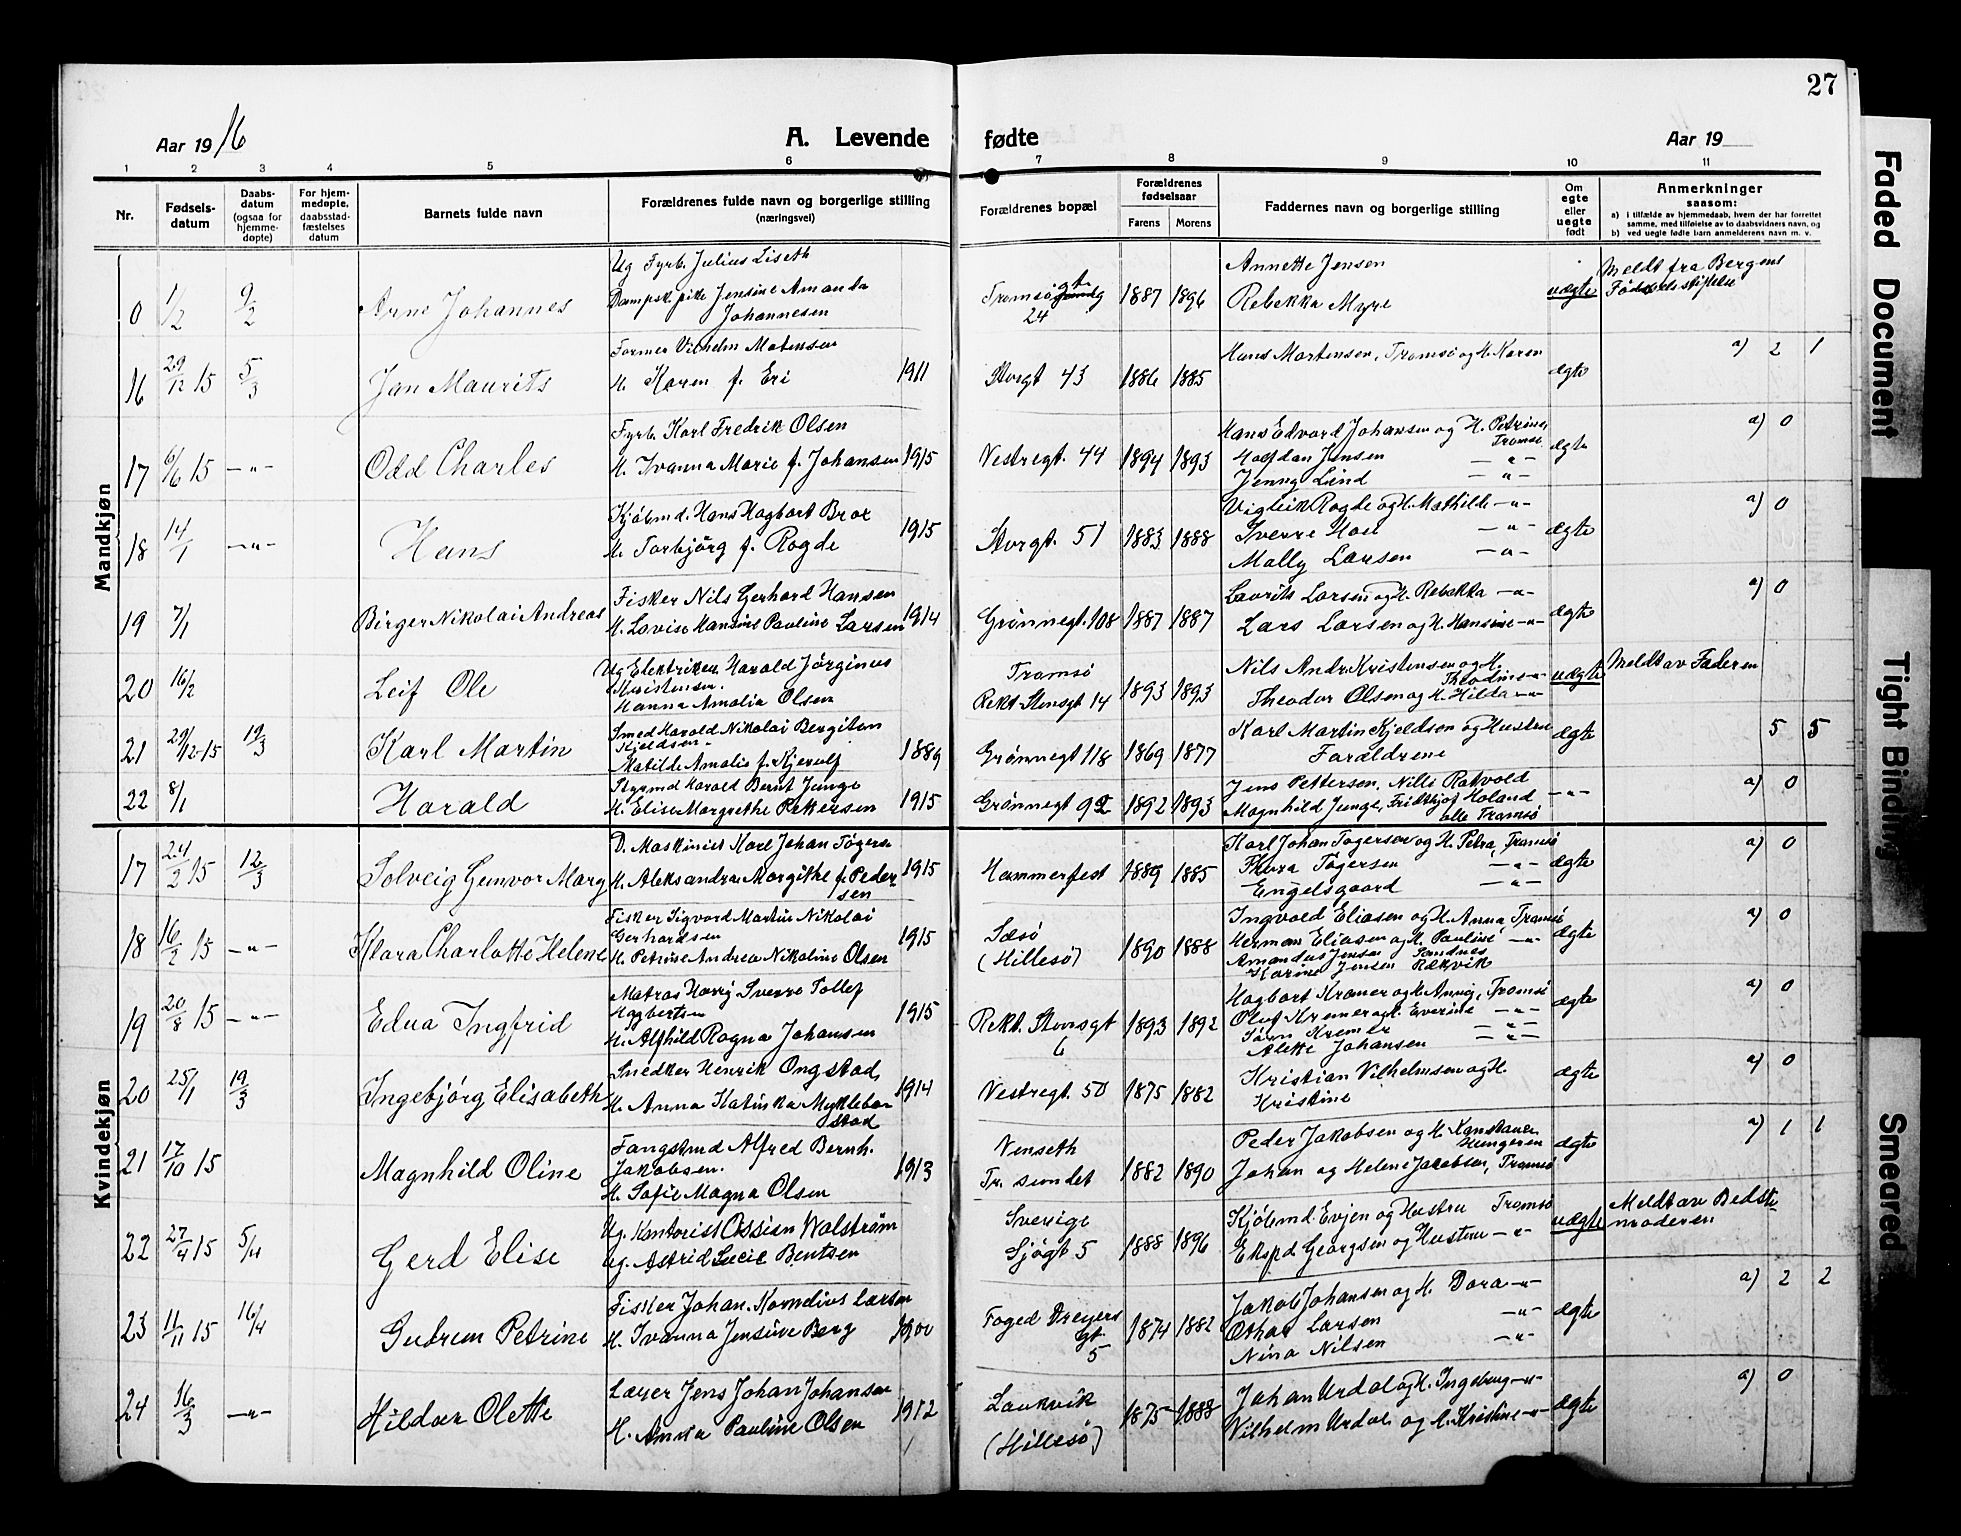 27
Aar 1916
A. Levende
fødte
Aar 19
1 2 3 4 5 6 7 8 9 10 11
Nr.
Fødsels-
datum
Daabs-
datum
(ogsaa for
hjemme-
døpte)
For hjem-
medøpte.
daabsstad-
fæstelses
datum
Barnets fulde navn
Forældrenes fulde navn og borgerlige stilling
(næringsvei)
Forældrenes bopæl
Forældrenes
fødselsaar
Farens Morens
Faddernes navn og borgerlige stilling
Om
egte
eller
uegte
født
Anmerkninger
saasom:
a) i tilfælde av hjemmedaab, hvem der har forrettet
samme, med tilføielse av to daabsvidners navn, og
b) ved uegte fødte barn anmelderens navn m. v.
Mandkjøn
0 1/2 9/2 Arne Johannes
Ug Fyrb. Julius Liseth
Dampsk.pike Jensine Amanda
Johannesen
Tromsøgt
24
1887 1896
Annette Jensen
Rebekka Myre
uægte
Meldt fra Bergens
Fødselsstiftelse
16 29/12 15 5/3 Jan Maurits
Former Vilhelm Motensen
H. Karen f. Eri 1911
Storgt 43 1886 1885
Hans Mortensen, Tromsø og H. Karen
ægte a) 2 1
17 6/6 15 -"- Odd Charles
Fyrb. Karl Fredrik Olsen
H. Ivanna Marie f. Johansen 1915
Vestregt. 44 1894 1893
Hans Edvard Johansen og H. Petrine,
Tromsø
Halfdan Jensen -"-
Jenny Lund -"-
ægte a) 0
18 14/1 -"- Hans
Kjøbmd. Hans Hagbart Brox
H. Torbjørg f. Rogde 1915
Storgt. 51 1883 1888
Vigleik Rogde og H. Mathilde -"-
Sverre Hoel -"-
Mally Larsen -"-
ægte a) 0
19 7/1 Birger Nikolai Andreas
Fisker Nils Gerhard Hansen
H. Lovise Hansine Pauline Larsen 1914
Grønnegt. 108 1887 1887
Lavrits Larsen og H. Rebekka -"-
Lars Larsen og H. Hansine -"-
ægte a) 0
20 16/2 Leif Ole
Ug Elektriker Harald Jørginus
Kristensen.
Hanna Amalia Olsen
Tromsø
Rekt. Stensgt 14 1893 1893
Nils Andr. Kristensen og H.
Theodine -"-
Theodor Olsen og H. Hilda -"-
uægte Meldt av Faderen
21 29/12-15 19/3 Karl Martin
Smed Harald Nikolai Bergiton
Kjeldsen -
Matilde Amalie f. Kjerulf 1889
Grønnegt 118 1869 1877
Karl Martin Kjeldsen og Hustru
Forældrene
ægte 5 5
22 8/1 Harald
Styrmd Harald Bernt Junge
H. Elise Margrethe Pettersen 1915
Grønnegt 92 1892 1893
Jens Pettersen, Nills Rakvold
Magnhild Junge, Fridthjof Holand
alle Tromsø
-"- a) 0
Kvindekjøn
17 24/2 15 12/3 Solveig Gunvor Marg
D. Maskinist Karl Johan Tøgersen
H. Aleksandra Margithe f. Peder-
sen 1915
Hammerfest 1889 1885
Karl Johan Tøgersen og H. Petra, Tromsø
Thora Tøgersen -"-
Engelsgaard -"-
ægte a) 0
18 16/2 15 -"- Klara Charlotte Helene
Fisker Sigvard Martin Nikolai
Gerhardsen
H. Petrine Andrea Nikoline Olsen 1915
Sæsø
(Hillesø) 1890 1888
Ingvald Eliasen og H. Anna, Tromsø
Herman Eliasen og H. Pauline -"-
Amandus Jensen Sandnes
Karine Jensen Rækvik
ægte a) 0
19 20/8 15 -"- Edna Ingfrid
Matros Harry Sverre Tollef
Hagbertsen
H. Alfhild Ragna Johansen 1915
Rekt. Stensgt
6 1893 1892
Hagbart Kramer og H. Anny, Tromsø
Oluf Kremer og H. Everine -"-
Kremer -"-
Alette Johansen -"-
ægte a) 0
20 25/1 19/3 Ingebjørg Elisabeth
Snedker Henrik Ongstad,
H. Anna Katinka Myklebor-
stad 1914
Vestregt. 50 1875 1882
Kristian Vilhelmsen og H
Kristine
ægte a) 0
21 17/10 15 Magnhild Oline
Fangstmd Alfred Bernh.
Jakobsen.
H. Sofie Magna Olsen 1913
Venseth
Tr. sundet 1882 1890
Peder Jakobsen og H. Konstance
Hungeren
Johan og Helene Jacobsen, Tromsø
ægte a) 1 1
22 27/4 15 5/4 Gerd Elise
Ug. Kontorist Ossian Walstrøm
Ug. Astrid Lucie Bentsen
Sverige
Sjøgt 5 1888 1896
Kjøbmd. Evjen og Hustru Tromsø
Ekspd Georgsen og Hustru -"-
uægte
Meldt av Bedste-
moderen
23 11/11 15 16/4 Gudrun Petrine
Fisker Johan Kornelius Larsen
H. Ivanna Jensine Berg 1900
Foged Dreyers
gt.
5 1874 1882
Jakob Johansen og H. Dora -"-
Othar Larsen -"-
Nina Nilsen -"-
ægte a) 2 2
24 16/3 -"- Hildur Olette
Læger Jens Johan Johansen
H. Anna Pauline Olsen 1912
Laukvik
(Hillesø) 1875 1888
Johan Urdal og H. Ingeborg -"-
Vilhelm Urdal og H. Kristine -"-
ægte a) 0
Faded Document
Tight Binding
Smeared